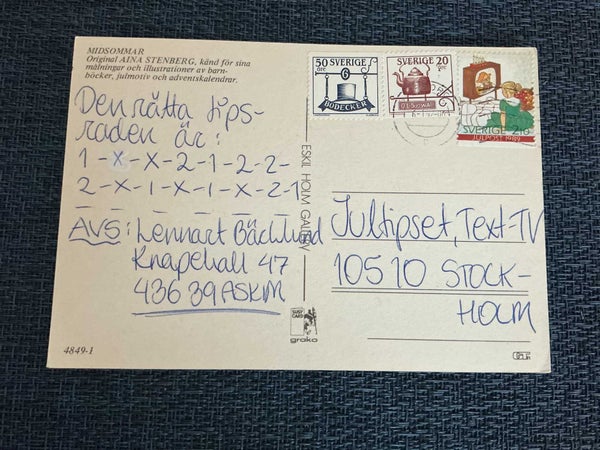 MIDSOMMAR
Original AINA STENBERG, känd för sina
målningar och illustrationer av barn-
böcker, julmotiv och adventskalendrar.
Den rätta tips-
raden är:
1-X-X-2-1-2-2-
2-X-1-X-1-X-2-1
AVS: Lennart Bäcklund
Knapehall 47
436 39 ASKIM
4849-1
ESKIL HOLM GALLERY
SUSY CARD
grako
50 ÖRE SVERIGE
6
BÖDECKER
SVERIGE 20
ÖRE
SVERIGE 2.10
JULPOST 1987
Jultipset, Text-TV
105 10 STOCK-
HOLM